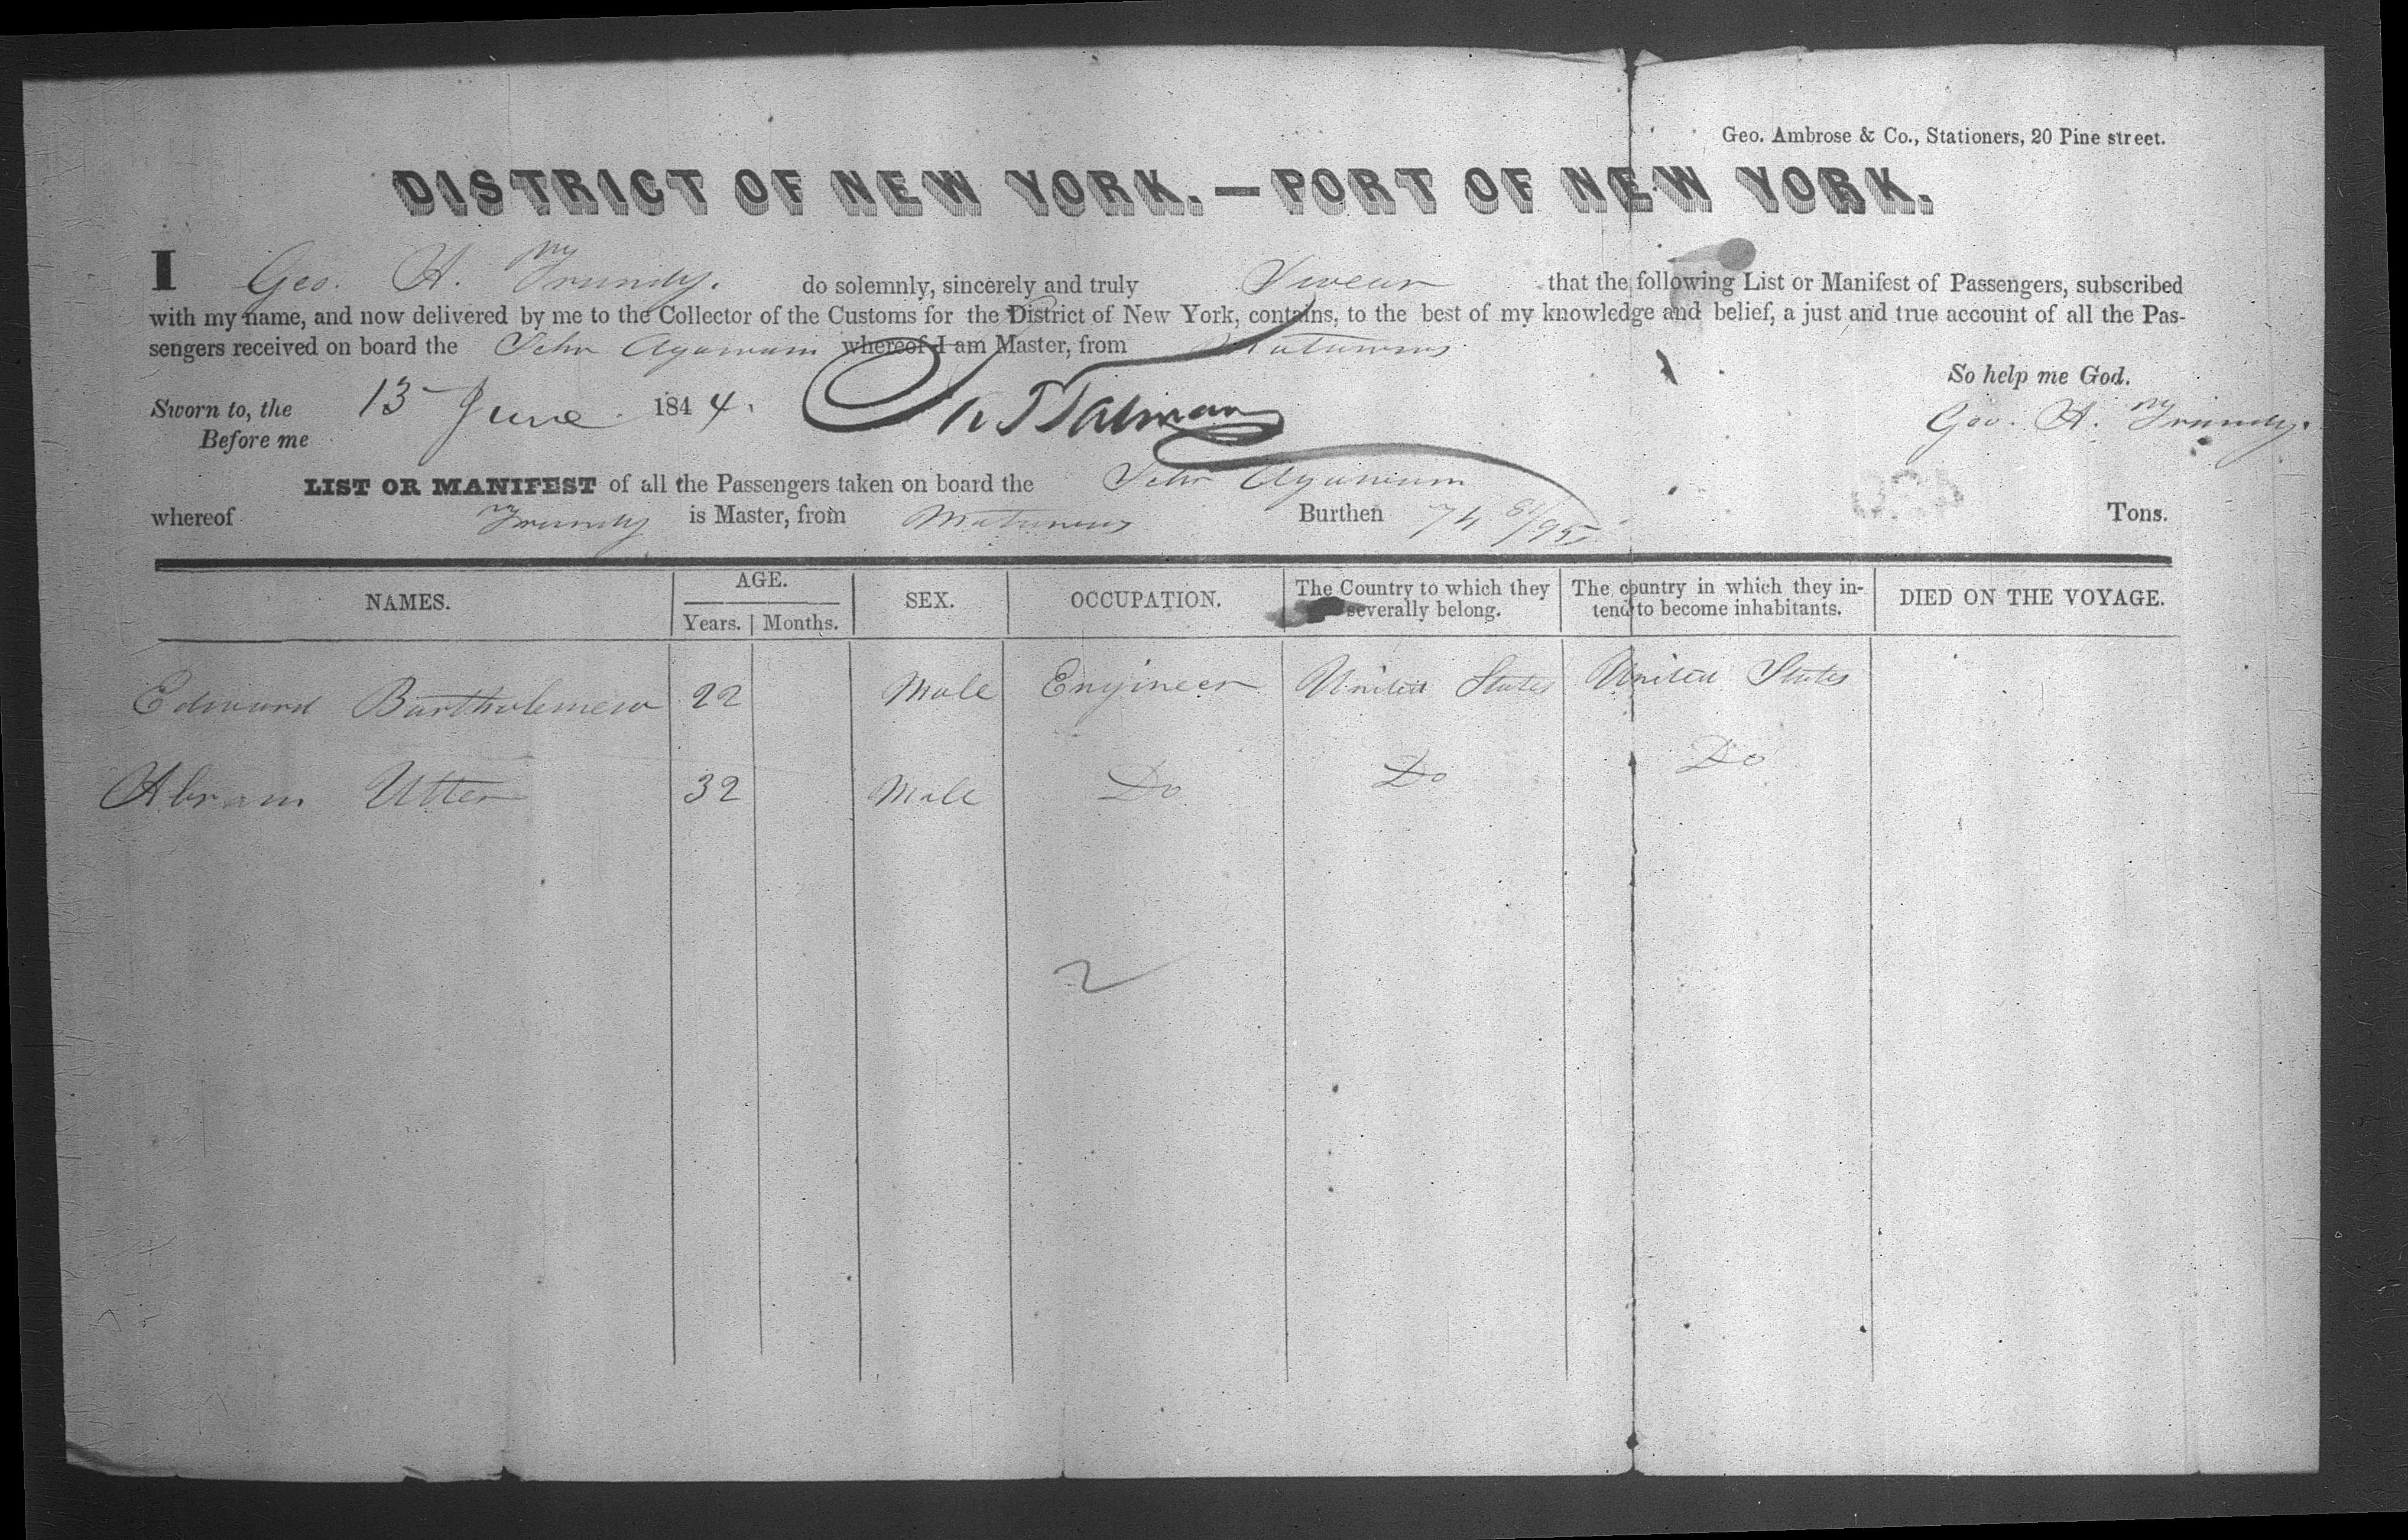 Geo. Ambrose & Co., Stationers, 20 Pine street.
DISTRICT OF NEW YORK.—PORT OF NEW YORK.
I Geo. A. Trundy. do solemnly, sincerely and truly Swear that the following List or Manifest of Passengers, subscribed
with my name, and now delivered by me to the Collector of the Customs for the District of New York, contains, to the best of my knowledge and belief, a just and true account of all the Pas-
sengers received on board the Schr Agawam whereof I am Master, from Matanzas
So help me God.
Sworn to, the 13 June 1844.
Before me
Geo. A. Trundy.
LIST OR MANIFEST of all the Passengers taken on board the Schr Agawam
whereof Trundy is Master, from Matanzas Burthen 74 /95 Tons.
NAMES. AGE. SEX. OCCUPATION. The Country to which they severally belong. The country in which they in-tend to become inhabitants. DIED ON THE VOYAGE.
Years. Months.
Edward Bartholemew 22 Male Engineer United States United States
Abram Utter 32 Male Do Do Do
2